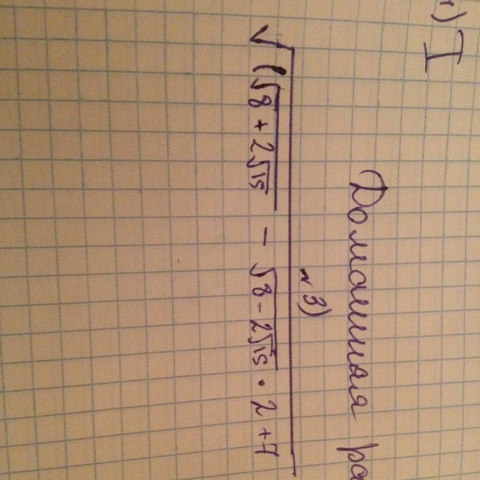 I
Домашная
N 3)
√((√(8 + 2√15) - √(8 - 2√15) · 2 + 7